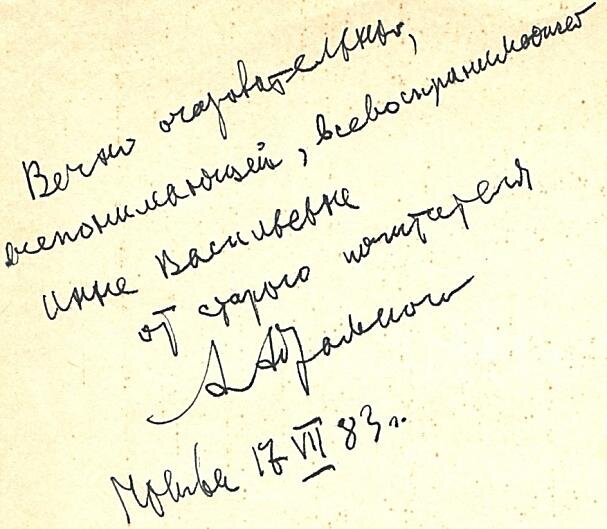 Вечно очаровательной,
всепонимающей, всевоспринимающей
Инне Васильевне
от старого почитателя
Москва 17 VII 83 г.